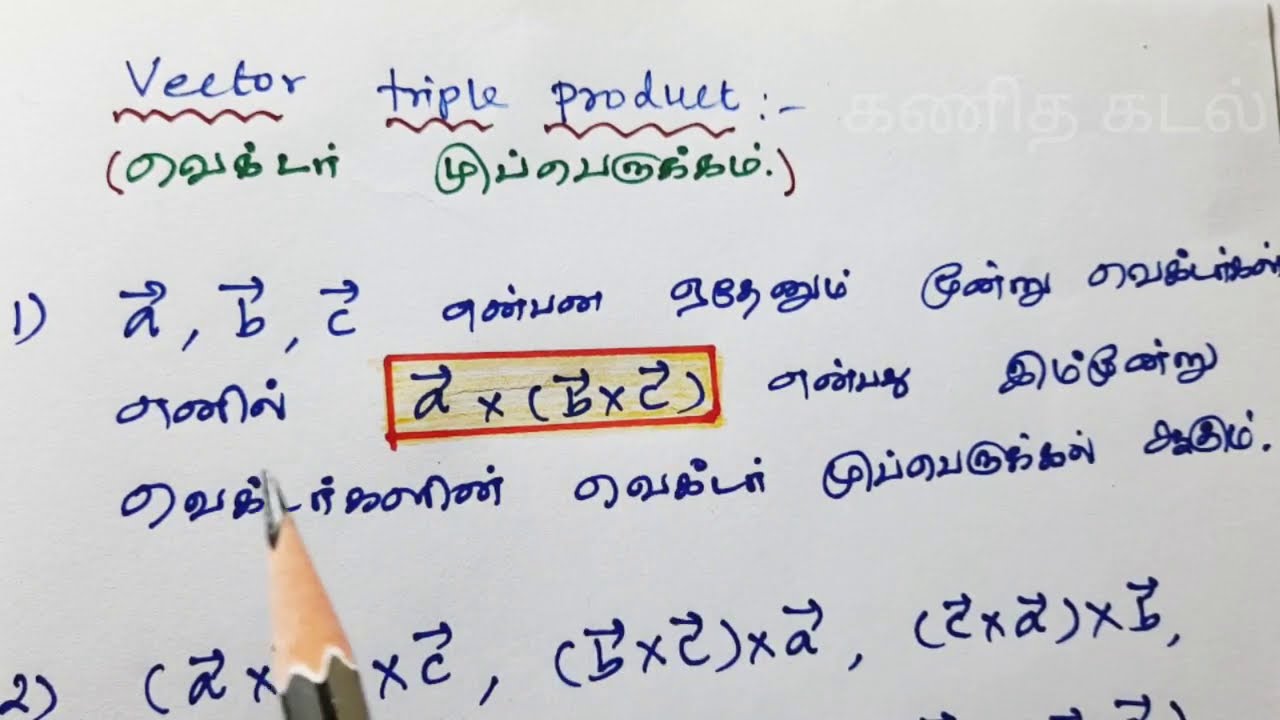 Vector triple product :-
கணித கடல்
(வெக்டர் முப்பெருக்கம்.)
1) a⃗, b⃗, c⃗ என்பன ஏதேனும் மூன்று வெக்டர்கள்
எனில் a⃗ × (b⃗ × c⃗) என்பது இம்மூன்று
வெக்டர்களின் வெக்டர் முப்பெருக்கல் ஆகும்.
2) (a⃗ × × c⃗, (b⃗ × c⃗) × a⃗, (c⃗ × a⃗) × b⃗,